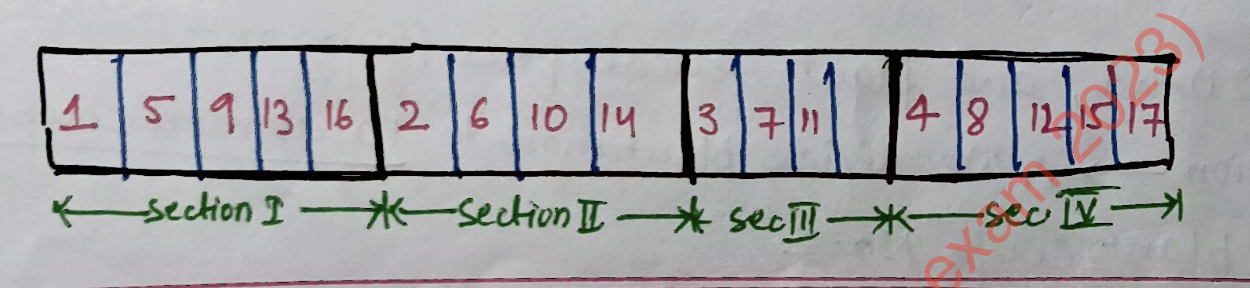 1 5 9 13 16 2 6 10 14 3 7 11 4 8 12 15 17
section I section II sec III sec IV
exam 2023)